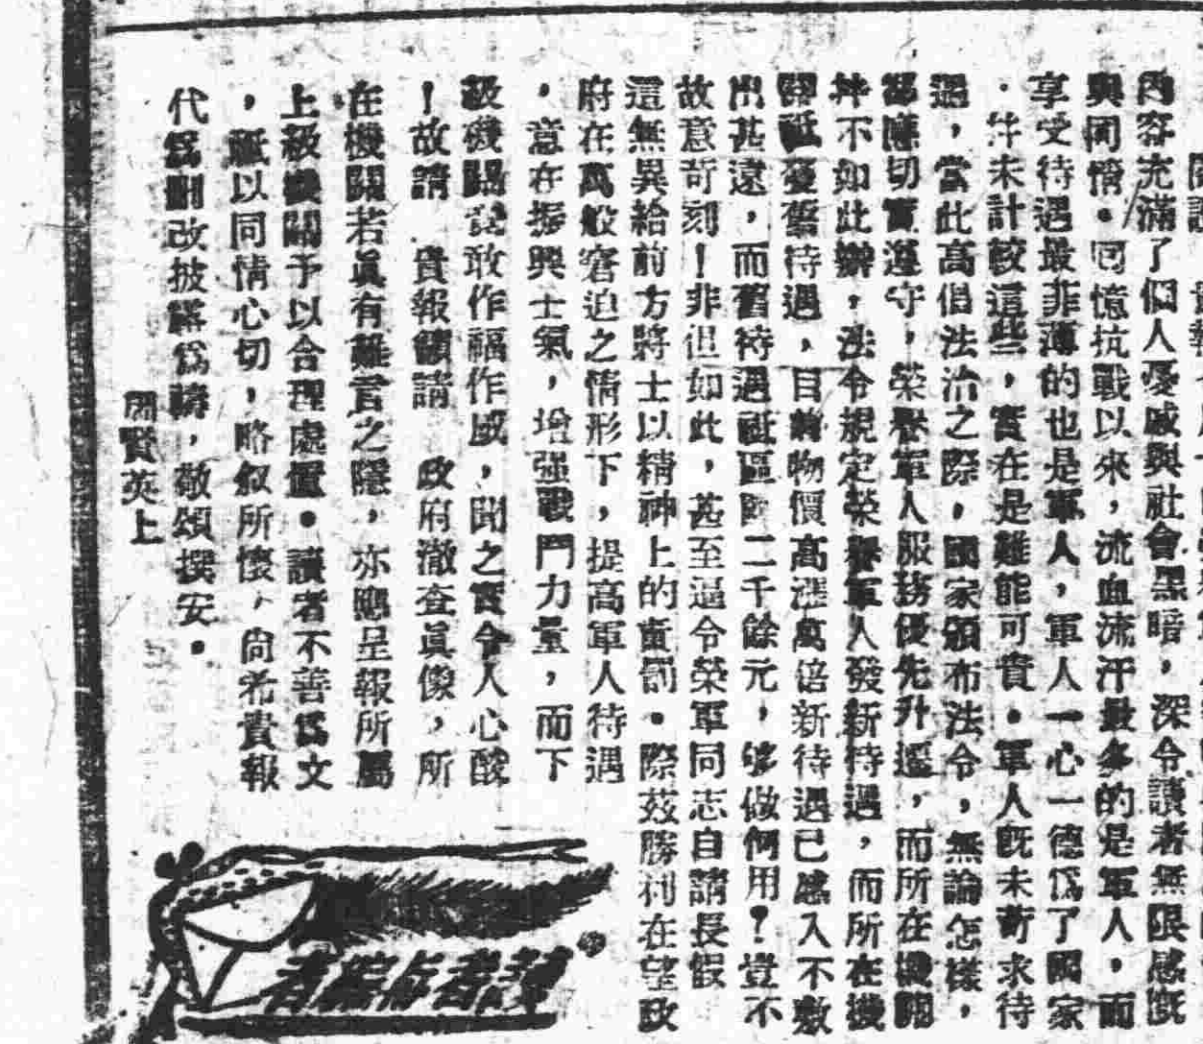 內容充滿了個人憂戚與社會黑暗，深令讀者無限感慨
與同情。回憶抗戰以來，流血流汗最多的是軍人，而
享受待遇最菲薄的也是軍人，軍人一心一德爲了國家
．幷未計較這些，實在是難能可貴。軍人旣未苛求待
遇，當此高倡法治之際，國家頒布法令，無論怎樣，
都應切實遵守，榮譽軍人服務優先升遷，而所在機關
幷不如此辦，法令規定榮譽軍人發新待遇，而所在機
關祗發舊待遇，目前物價高漲萬倍新待遇已感入不敷
出甚遠，而舊待遇祗區區二千餘元，够做何用？豈不
故意苛刻！非但如此，甚至逼令榮軍同志自請長假
這無異給前方將士以精神上的責罰。際茲勝利在望政
府在萬般窘迫之情形下，提高軍人待遇
，意在振興士氣，增强戰鬥力量，而下
級機關竟敢作福作威，聞之實令人心酸
！故請　貴報籲請　政府澈查眞像，所
在機關若眞有難言之隱，亦應呈報所屬
上級機關予以合理處置。讀者不善爲文
，祗以同情心切，略叙所懷，尙希貴報
代爲刪改披露爲禱，敬頌撰安。
賢英上
讀者與編者